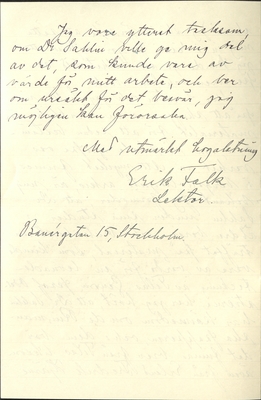 Jag vore ytterst tacksam,
om Dr Sahlin ville ge mig del
av det, som kunde vara av
värde för mitt arbete, och ber
om ursäkt för det besvär, jag
möjligen kan förorsaka.
Med utmärkt högaktning
Erik Falk
Lektor.
Banérgatan 15, Stockholm.